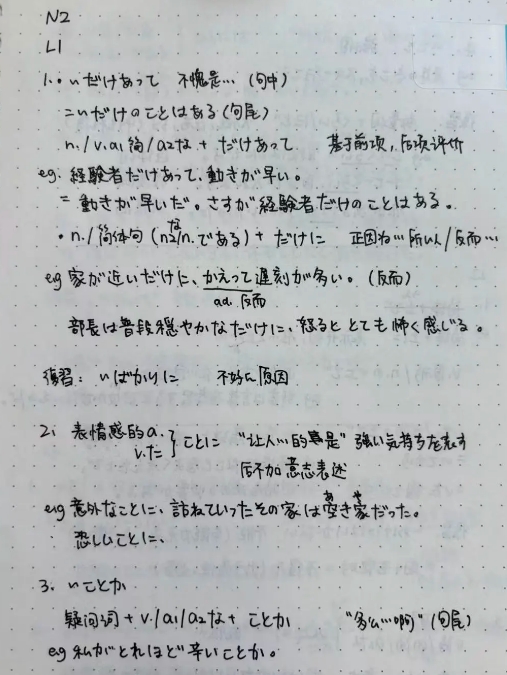 N2
L1
1. • ~だけあって 不愧是… (句中)
=~だけのことはある (句尾)
n./v.a1简/a2な + だけあって 基于前项,后项评价
eg: 経験者だけあって、動きが早い。
= 動きが早いだ。さすが経験者だけのことはある。
な
• n./简体句 (na2/n.である) + だけに 正因为…所以/反而…
eg 家が近いだけに、かえって遅刻が多い。(反而)
ad. 反而
部長は普段穏やかなだけに、怒るととても怖く感じる。
復習: ~ばかりに 不好的原因
2. 表情感的a.
v.た } ことに "让人…的是" 強い気持ちを表す
后不加意志表述
あ や
eg 意外なことに、訪ねていったその家は空き家だった。
悲しいことに、
3. ~ことか
疑问词 + v./a1/a2な + ことか "多么…啊" (句尾)
eg 私がどれほど辛いことか。